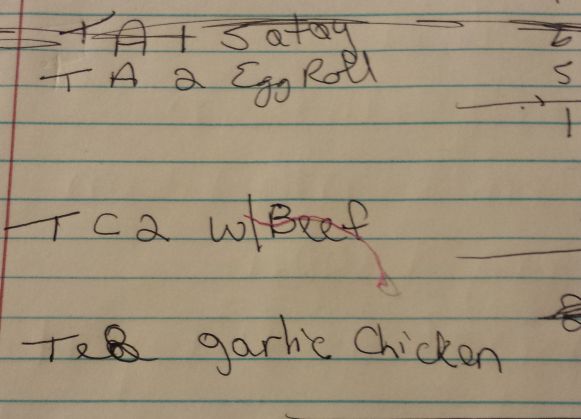 TA1 Satay 6
TA2 Egg Roll 5
1
TC2 w/Beef
garlic Chicken